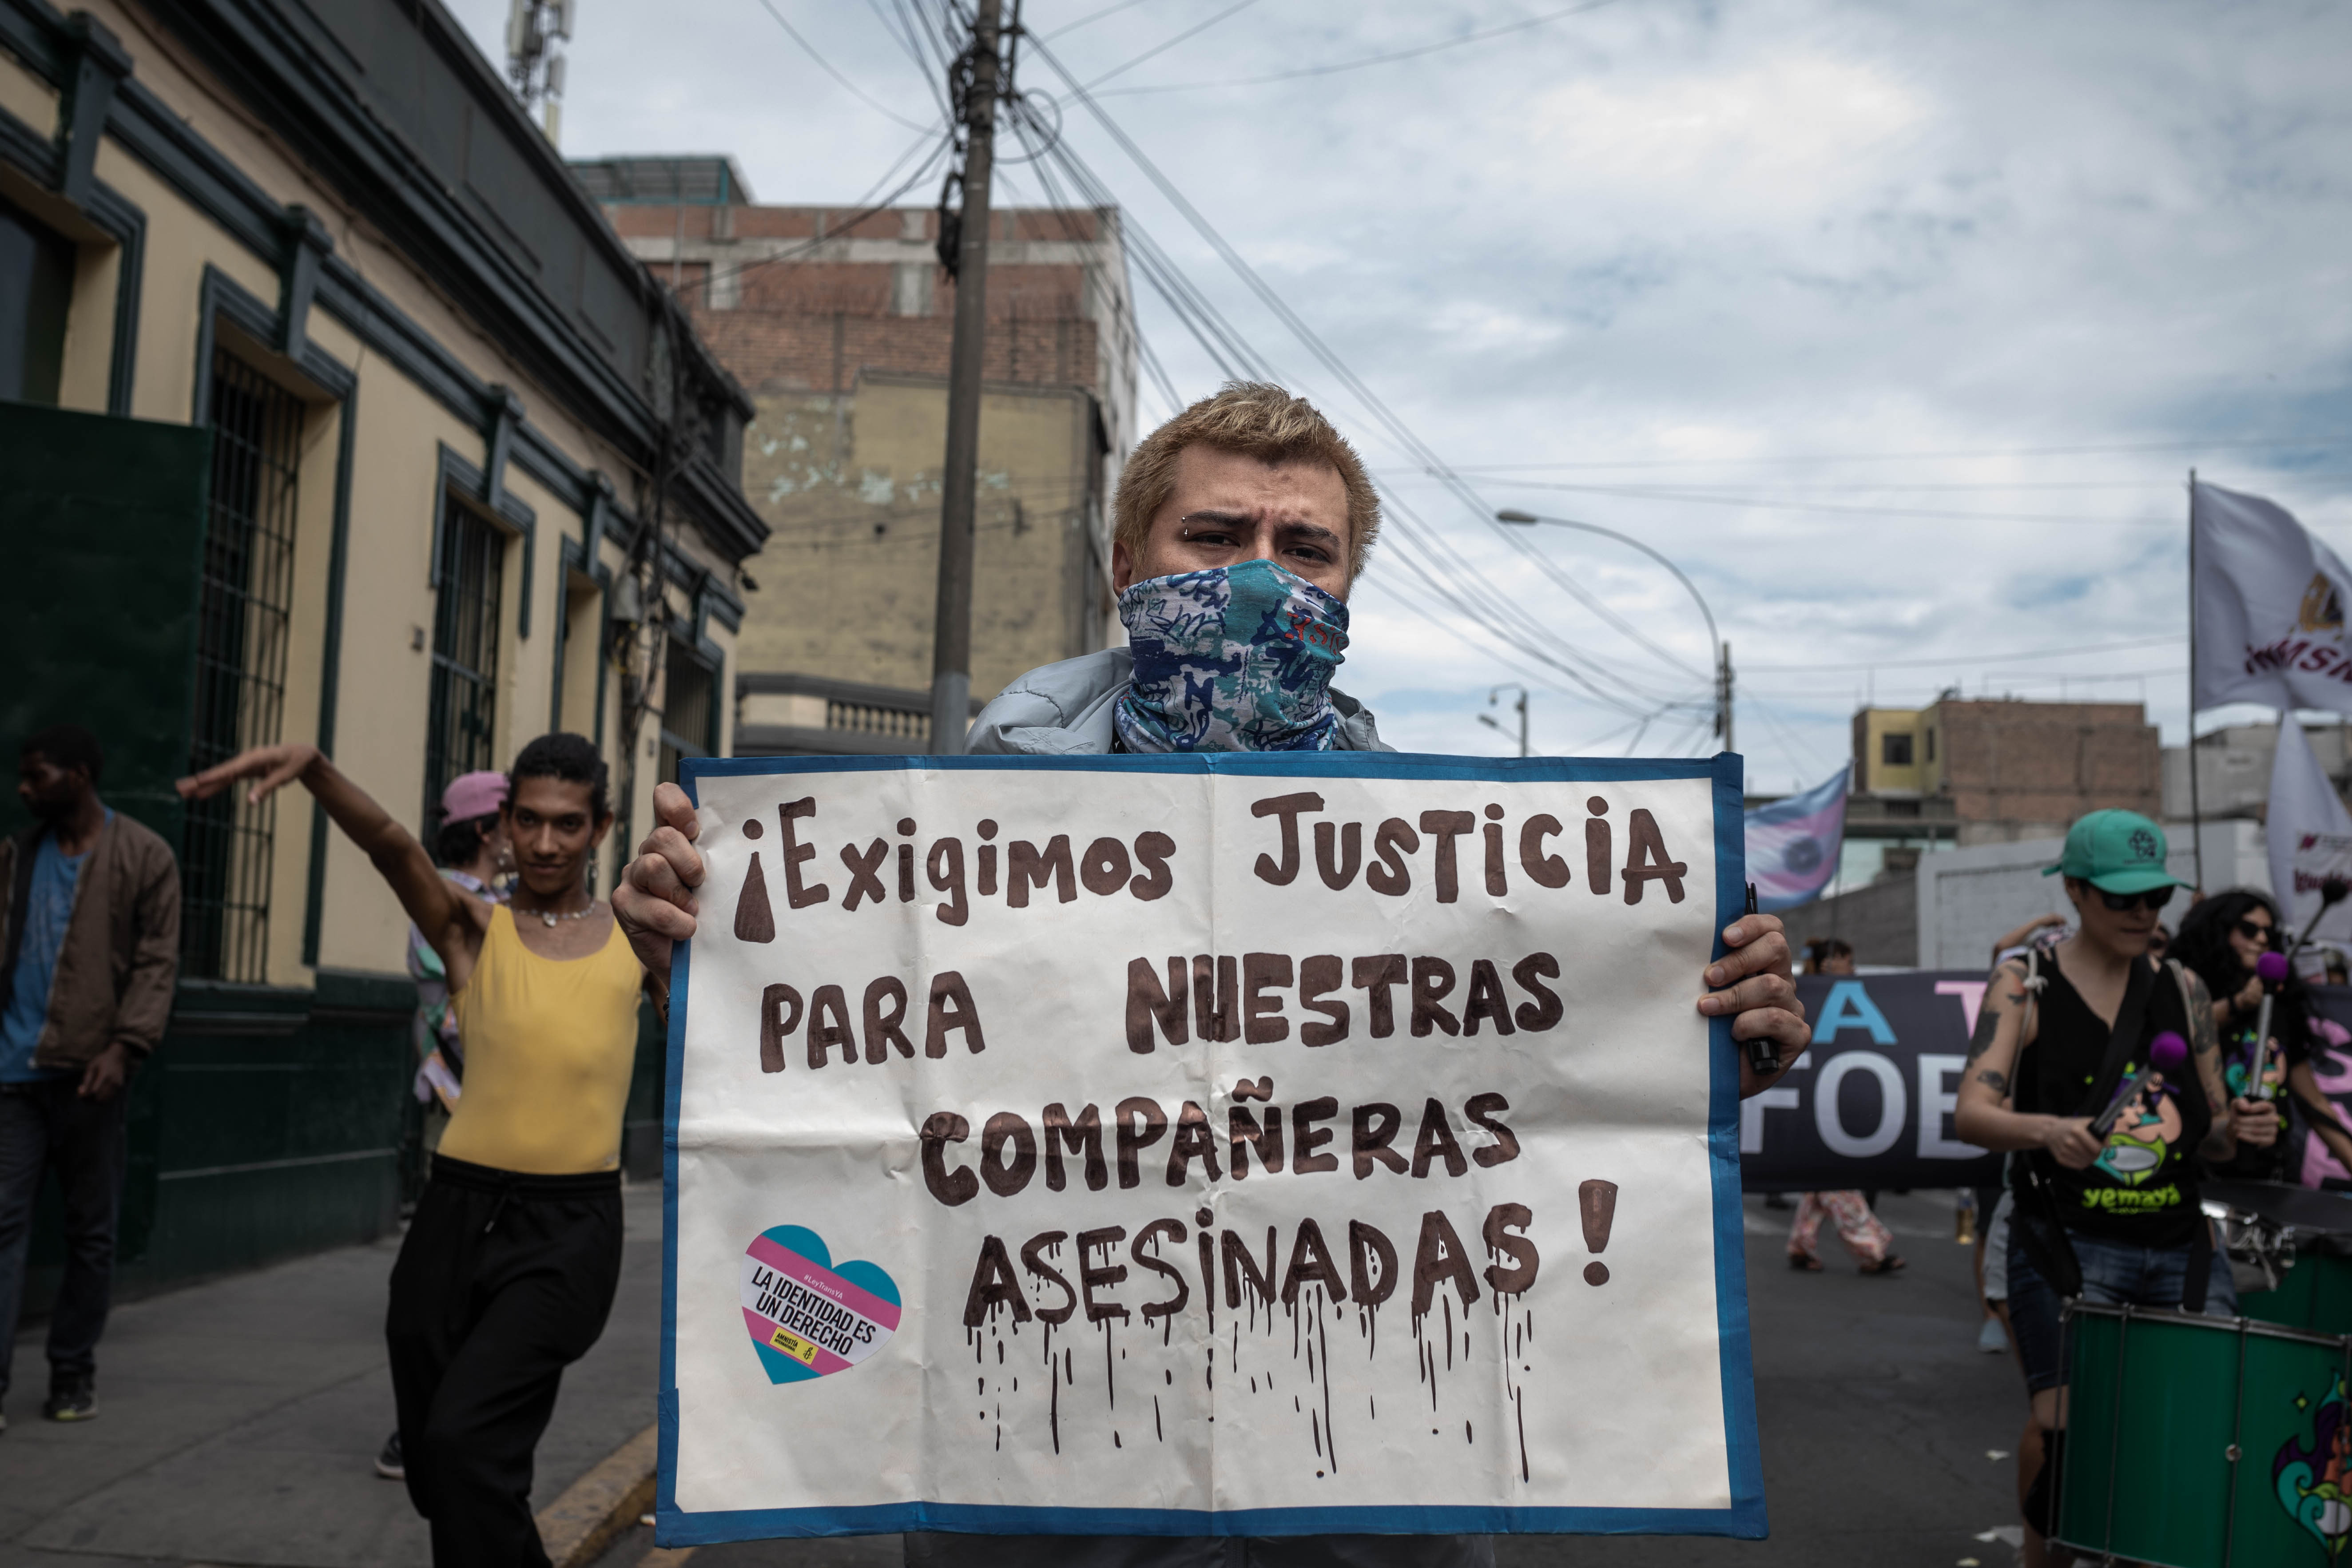 ¡Exigimos JUSTiCiA
PARA NUESTRAS
COMPAÑERAS
ASESiNADAS!
#LeyTransYA
LA IDENTIDAD ES
UN DERECHO
AMNISTÍA
INTERNACIONAL
A T
FOB
yemayá